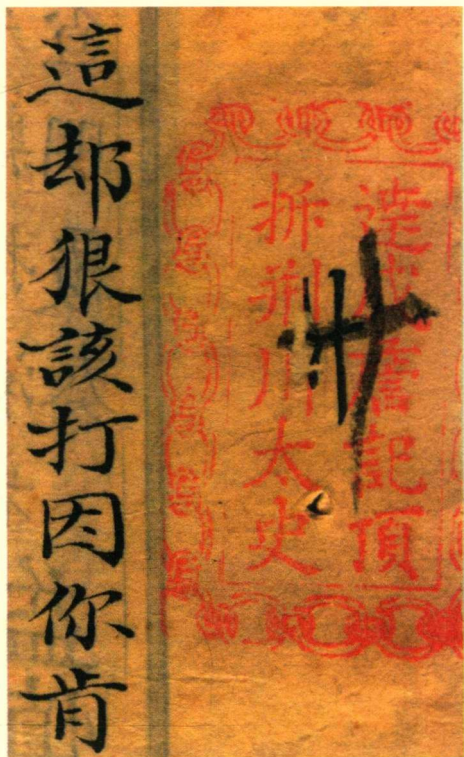 達成記頂
拆荆川太史
卅
這却狠該打因你肯